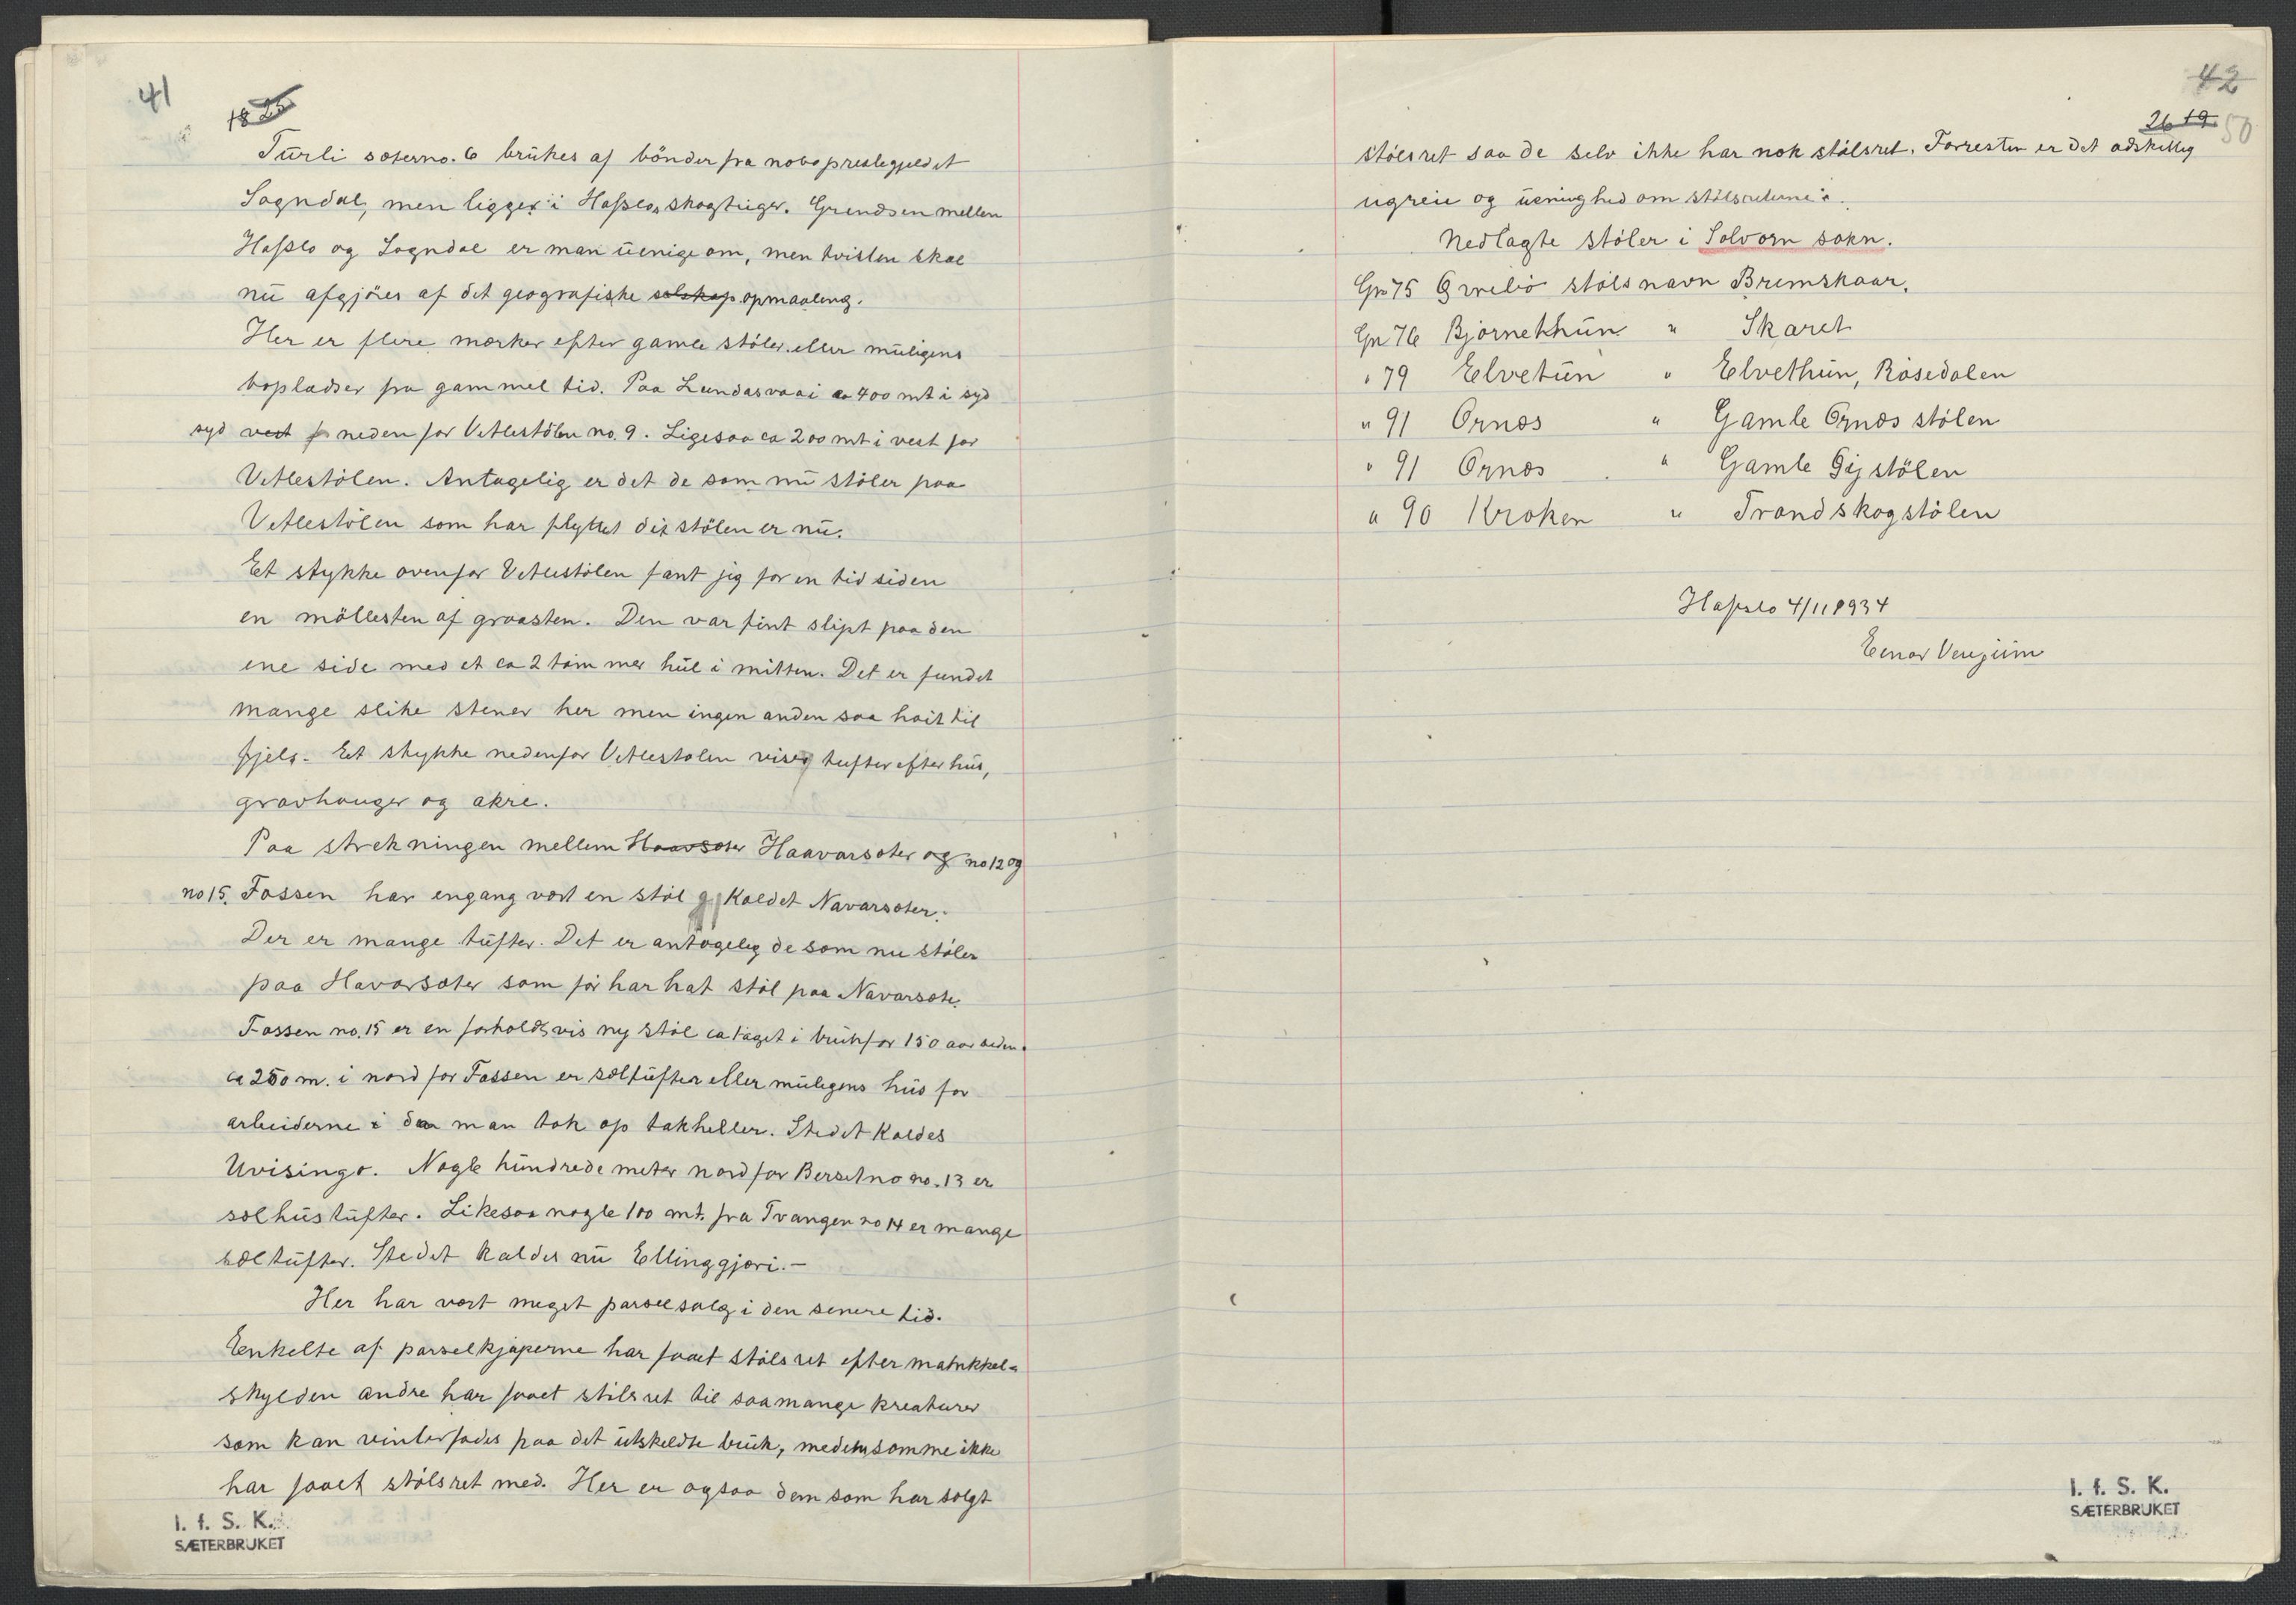 41
18 25
Turli sæterno. 6 brukes af bönder fra nabopreslegjeldet
Sogndal, men ligger i Hafslos skogteiger. Grendsen mellem
Hafslo og Sogndal er man uenige om, men tvisten skal
nu afgjöres af det geografiske selskap opmaaling.
Her er flere mærker efter gamle stöler. eller muligens
bopladser fra gammel tid. Paa Lundasvaai ca 400 mt i syd
syd vest f neden for Vetlestölen no. 9. Ligesaa ca 200 mt i vest for
Vetlestölen. Antagelig er det de som nu stöler paa
Vetlestölen som har flyttet dit stölen er nu.
Et stykke ovenfor Vetlestölen fant jig for en tid siden
en möllesten af graasten. Den var fint slipt paa den
ene side med et ca 2 tommer hul i mitten. Det er fundet
mange slike stener her men ingen anden saa höit til
fjels. Et stykke nedenfor Vetlestölen viser tufter efter hus,
gravhauger og akre.
Paa strekningen mellem Haavsæter Haavarsæter og no 12 og
no 15. Fossen har engang vært en stöl g kaldet Navarsæter.
Der er mange tufter. Det er antagelig de som nu stöler
paa Havarsæter som för har hat stöl paa Navarsæte.
Fossen no. 15 er en forholdsvis ny stöl ca taget i bruk for 150 aar siden.
ca 250 m. i nord for Fossen er sæltufter eller muligens hus for
arbeiderne i da man tok op takheller. Stedet kaldes
Uvisingo. Nogle hundrede meter nord for Bersetno no. 13 er
sælhustufter. Likesaa nogle 100 mt. fra Tvangen no 14 er mange
sæltufter. Stedet kaldes nu Ellinggjæri.-
Her har vært meget parselsalg i den senere tid.
Eenkelte af parselkjöperne har faaet stölsret efter matrikkel-
skylden andre har faaet stölsret til saa mange kreaturer
som kan vinterfødes paa det utskeldte bruk, medens somme ikke
har faaet stölsret med. Her er ogsaa dem som har solgt
I. f. S. K.
SÆTERBRUKET
42
26 19.
50
stölsret saa de selv ikke har nok stölsret. Forresten er det adskellig
ugreie og uenighed om stölsreterne.
Nedlagte stöler i Solvorn sokn.
Gn 75 Qvrelio stöls navn Bremskaar.
Gn 76 Bjørnethun " Skaret
" 79 Elvetun " Elvethun, Rösedalen
" 91 Ornæs " Gamle Ornæs stölen
" 91 Ornæs " Gamle Gijstölen
" 90 Kroken " Trandskogstölen
Hafslo 4/11 1934
Einar Venjum
I. f. S. K.
SÆTERBRUKET